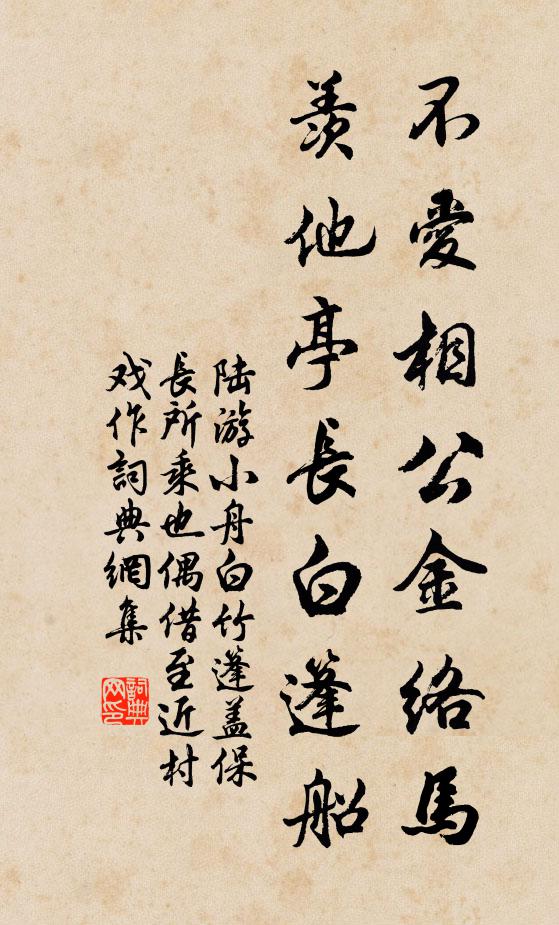 不愛相公金絡馬
羨他亭長白蓬船
陆游小舟白竹蓬盖保
長所乘也偶借至近村
戏作詞典網集
詞典网印